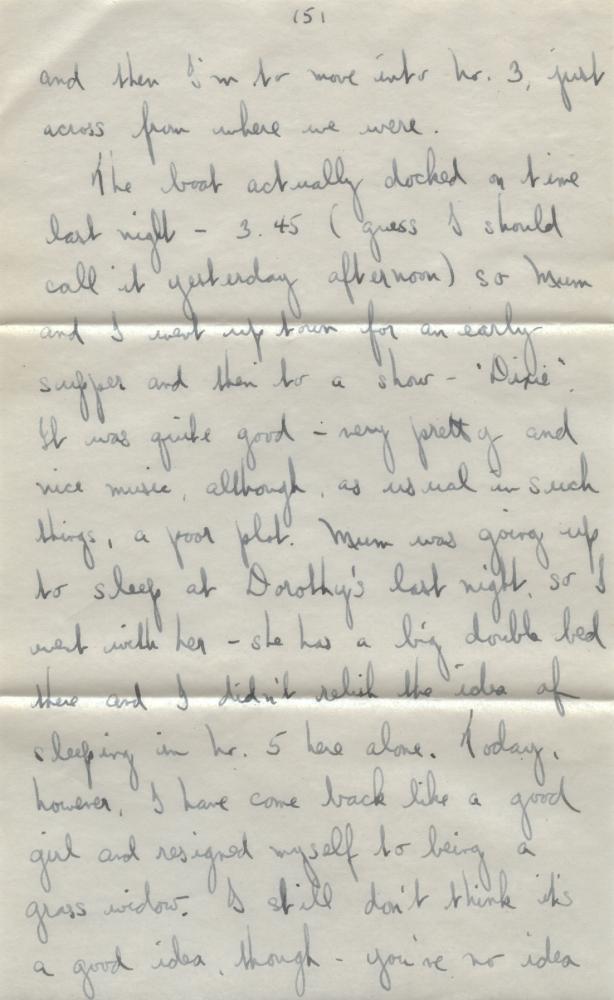 (5)
and then I'm to move into no. 3, just
across from where we were.
The boat actually docked on time
last night - 3.45 (guess I should
call it yesterday afternoon) so Mum
and I went up town for an early
supper and then to a show - "Dixie".
It was quite good - very pretty and
nice music, although, as usual in such
things, a poor plot. Mum was going up
to sleep at Dorothy's last night, so I
went with her - she has a big double bed
there and I didn't relish the idea of
sleeping in no. 5 here alone. Today,
however, I have come back like a good
girl and resigned myself to being a
grass widow. I still don't think it's
a good idea, though - you've no idea